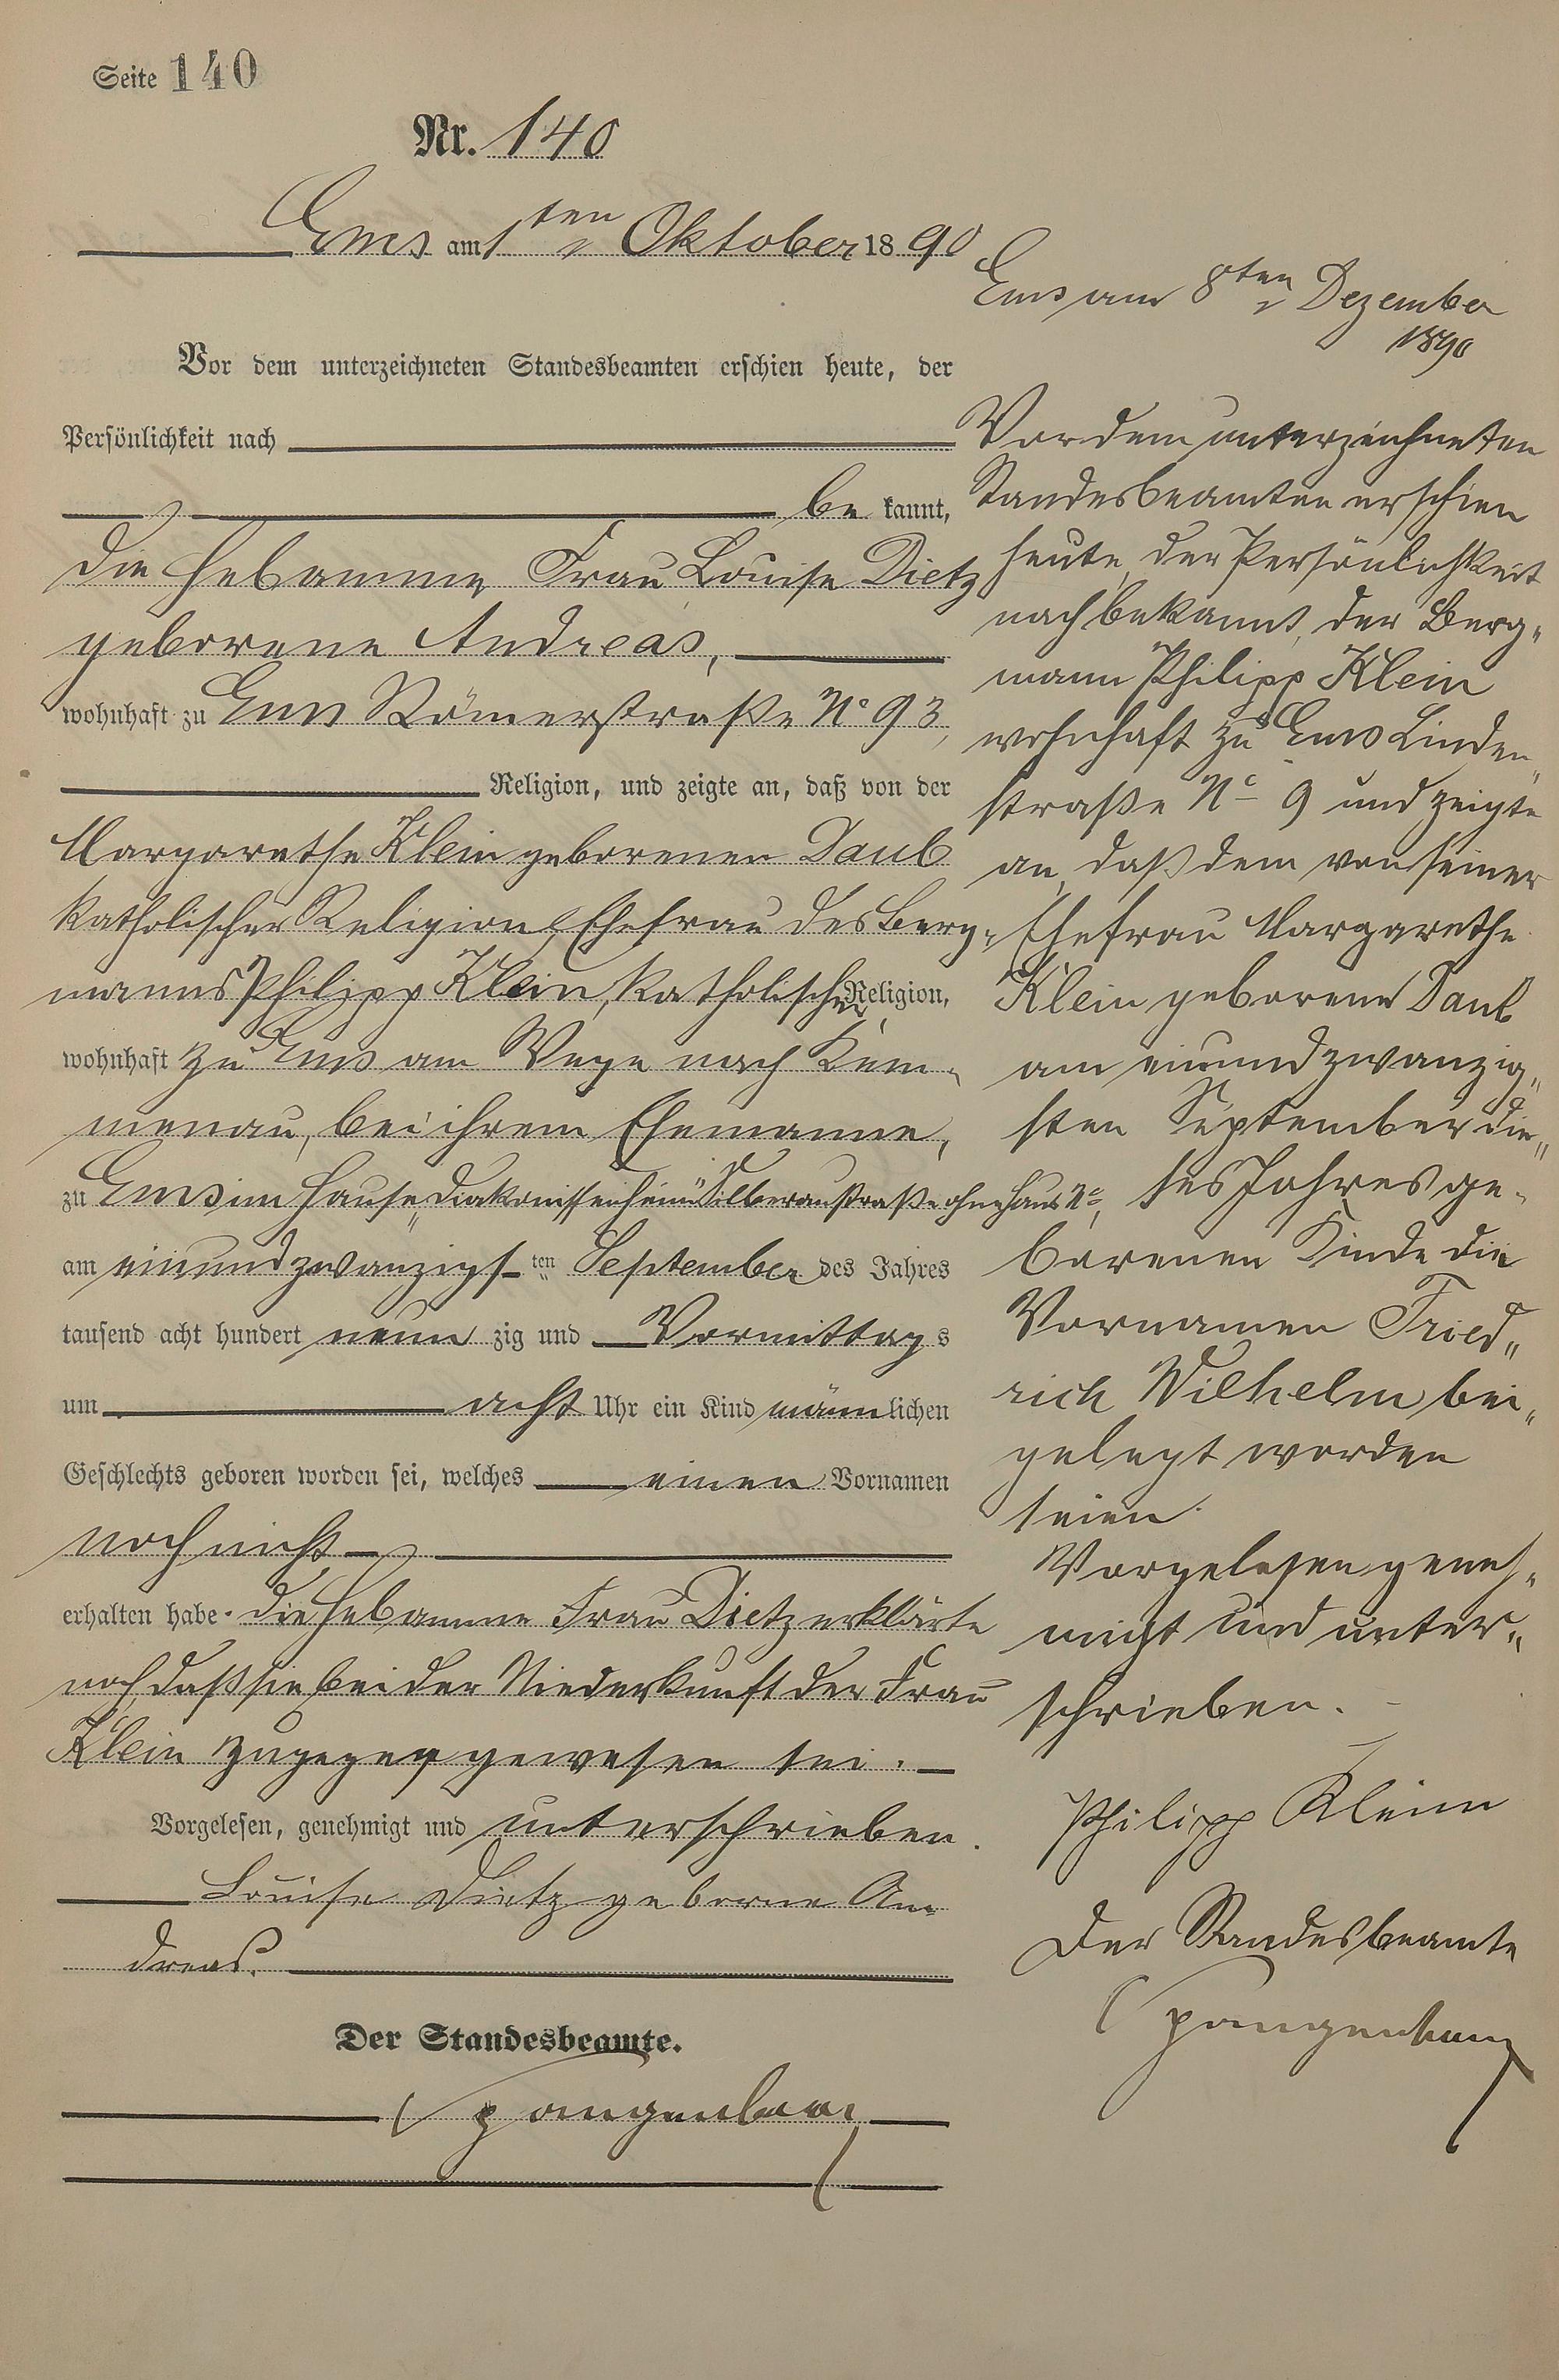 Seite 140
Nr. 140
Ems am 1ten Oktober 1890
Vor dem unterzeichneten Standesbeamten erschien heute, der
Persönlichkeit nach
be kannt,
die Hebamme Frau Louise Dietz
geborene Andreas,
wohnhaft zu Ems Römerstraße No 93,
Religion, und zeigte an, daß von der
Margarethe Klein geborenen Daub
katholischer Religion, Ehefrau des Berg-
manns Philipp Klein, katholischer Religion,
wohnhaft zu Ems am Wege nach Kem-
menau, bei ihrem Ehemanne,
zu Ems im Hause „Diakonissenheim“ Silberaustraße ohne Haus No,
am einundzwanzigsten September des Jahres
tausend acht hundert neunzig und Vormittags
um acht Uhr ein Kind männlichen
Geschlechts geboren worden sei, welches einen Vornamen
noch nicht
erhalten habe. Die Hebamme Frau Dietz erklärte
noch, daß sie bei der Niederkunft der Frau
Klein zugegen gewesen sei.
Vorgelesen, genehmigt und unterschrieben.
Louise Dietz geborne An-
dreas.
Der Standesbeamte.
Spangenberg
Ems am 8ten Dezember
1890
Vor dem unterzeichneten
Standesbeamten erschien
heute, der Persönlichkeit
nach bekannt, der Berg-
mann Philipp Klein
wohnhaft zu Ems Linden-
straße No 9 und zeigte
an, daß dem von seiner
Ehefrau Margarethe
Klein geborene Daub
am einundzwanzig-
sten September die-
ses Jahres ge-
borenen Kinde die
Vornamen Fried-
rich Wilhelm bei-
gelegt worden
seien.
Vorgelesen geneh-
migt und unter-
schrieben.
Philipp Klein
Der Standesbeamte
Spangenberg